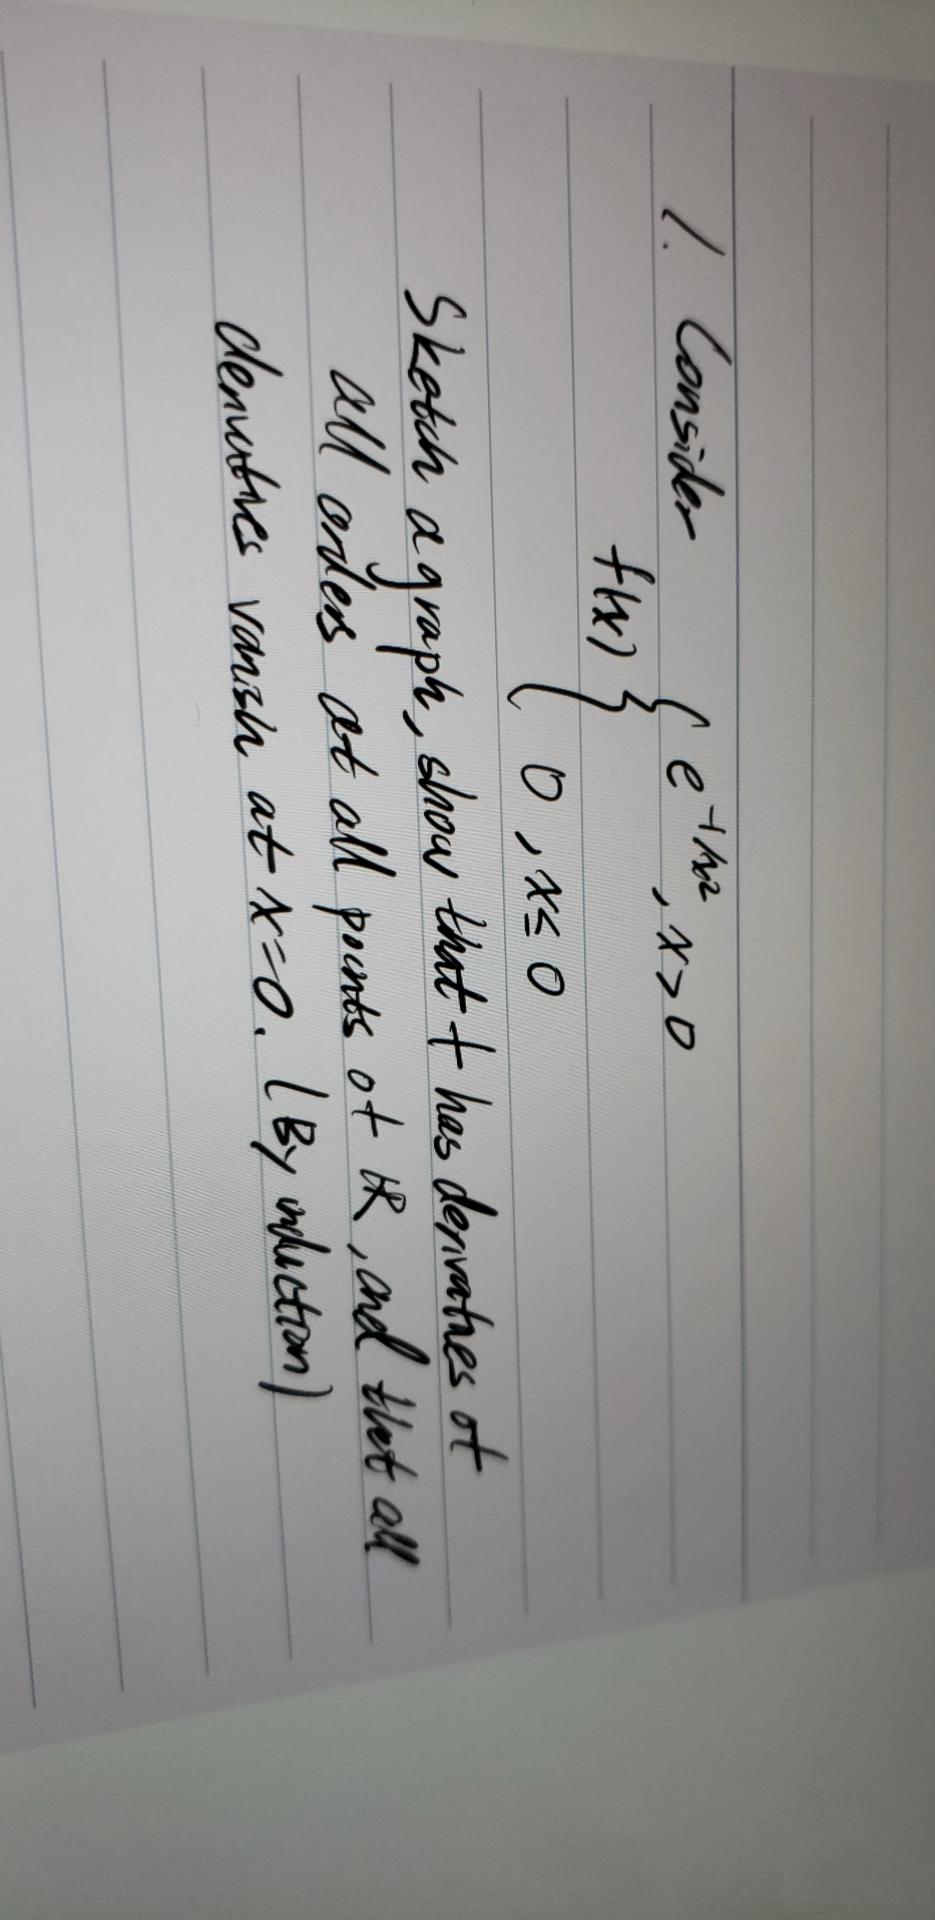 1. Consider
f(x) { e^{-1/x^2}, x>0
0, x≤0
Sketch a graph, show that f has derivatives of
all orders at all points of ℝ, and that all
derivatives vanish at x=0. (By induction)